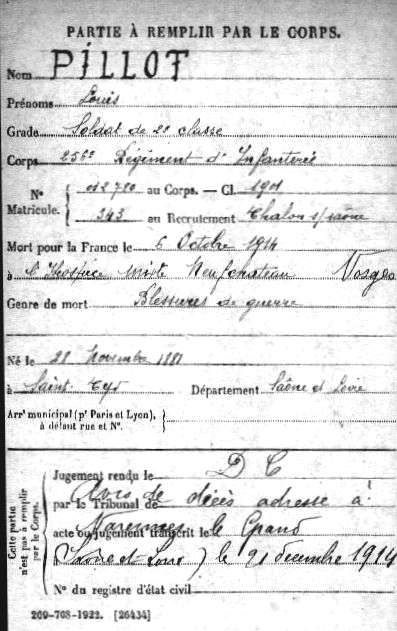 PARTIE À REMPLIR PAR LE CORPS.
Nom PILLOT
Prénoms Louis
Grade Soldat de 2e classe
Corps 256e Régiment d'Infanterie
No 012780 au Corps. — Cl. 1901
Matricule. 343 au Recrutement Chalon s/saône
Mort pour la France le 6 Octobre 1914
à l'Hospice mixte Neufchateau Vosges
Genre de mort Blessures de guerre
Né le 28 Novembre 1881
à Saint Cyr Département Saône et Loire
Arrt municipal (pr Paris et Lyon),
à défaut rue et No.
Cette partie
n'est pas à remplir
par le Corps.
Jugement rendu le D C
par le Tribunal de Avis de décès adressé à
acte ou jugement transcrit le Varennes le Grand
(Saône-et-Loire) le 21 décembre 1914
No du registre d'état civil
269-708-1922. [26434]